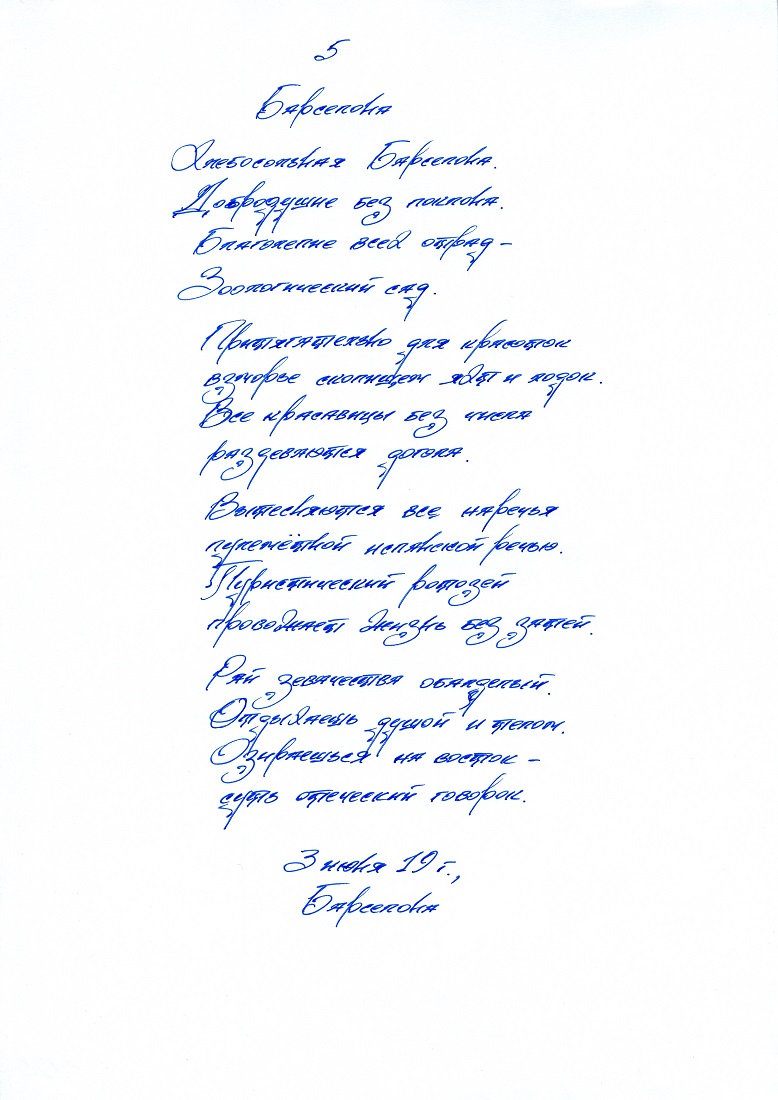 5
Барселона
Хлебосольная Барселона.
Добродушие без поклона.
Благолепие всех отрад –
Зоологический сад.
Притягательно для красоток
взморье скопищем яхт и лодок.
Все красавицы без числа
раздеваются догола.
Вытесняются все наречья
пулемётной испанской речью.
Туристический ротозей
провожает жизнь без затей.
Рай зевачества обалделый.
Отдыхаешь душой и телом.
Озираешься на восток –
суть отеческий говорок.
3 июня 19 г.,
Барселона